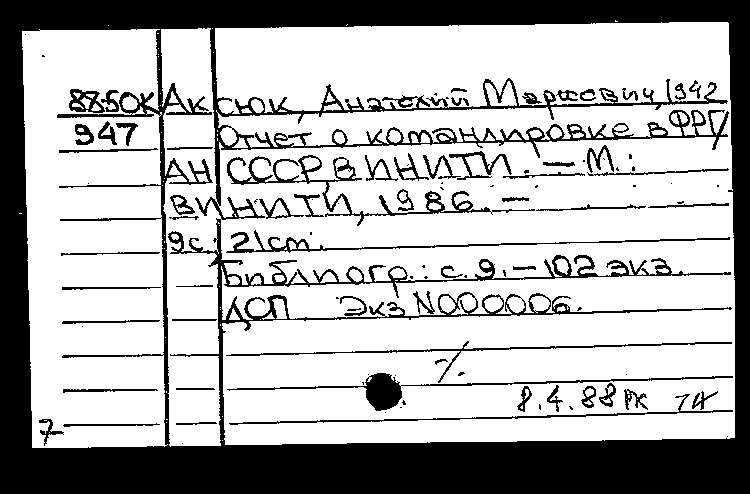 88-50К Аксюк, Анатолий Маркович, 1942
947 Отчет о командировке в ФРГ/
АН СССР, ВИНИТИ. — М.:
ВИНИТИ, 1986. —
9с.; 21cm.
Библиогр.: с. 9. — 102 экз.
ДСП Экз N000006.
8.4.88 РК
7